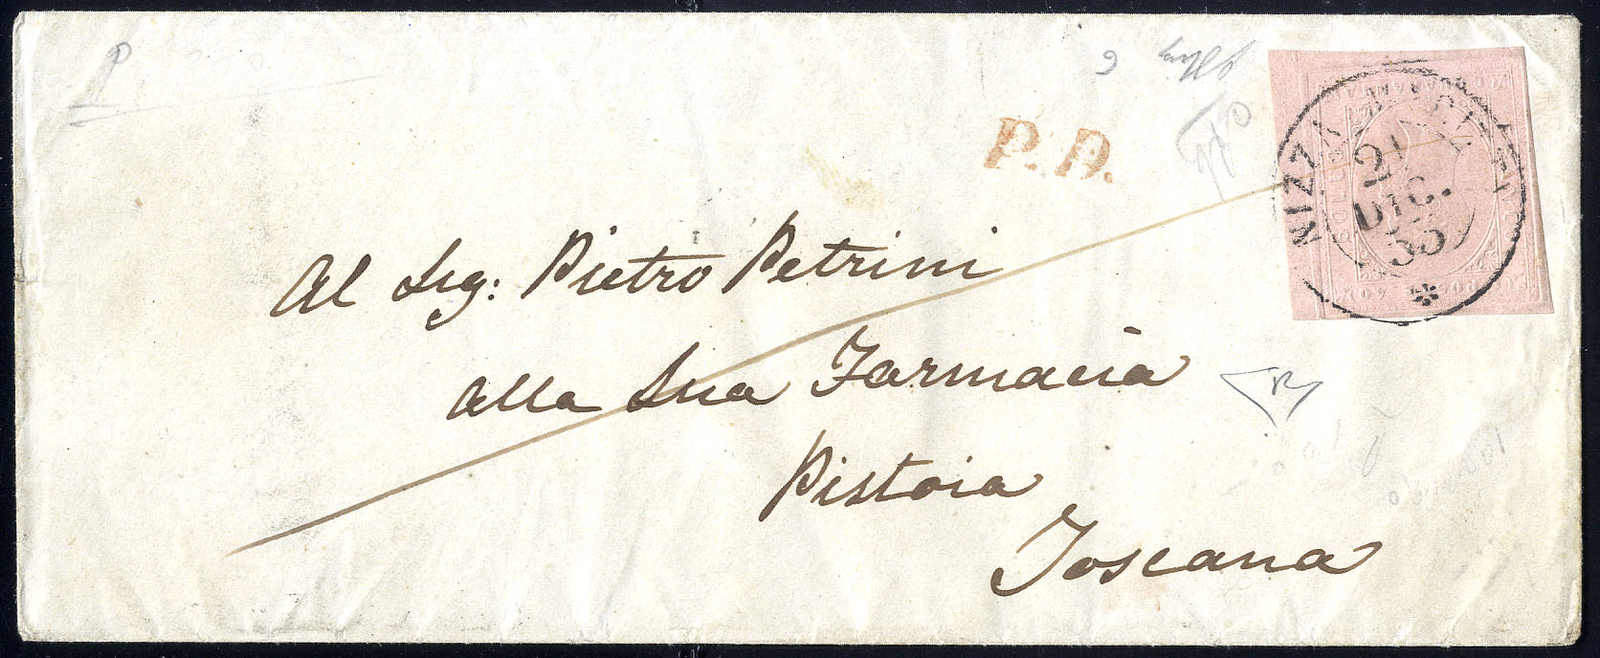 P.D.
NIZZA
21
DIC.
53
Al Sig: Pietro Petrini
alla Sua Farmacia
Pistoia
Toscana